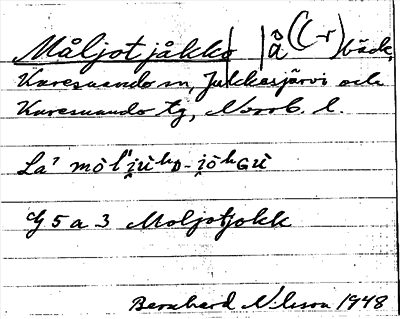 Måljotjåkko | å(-r) bäck,
Karesuando sn, Jukkasjärvi och
Karesuando tg, Norrb. l.
La' mò̀l'i̯ùʰᴅ-i̯ò̀ʰɢù
G 5 a 3 Moljotjokk
Bernhard Nilsson 1948